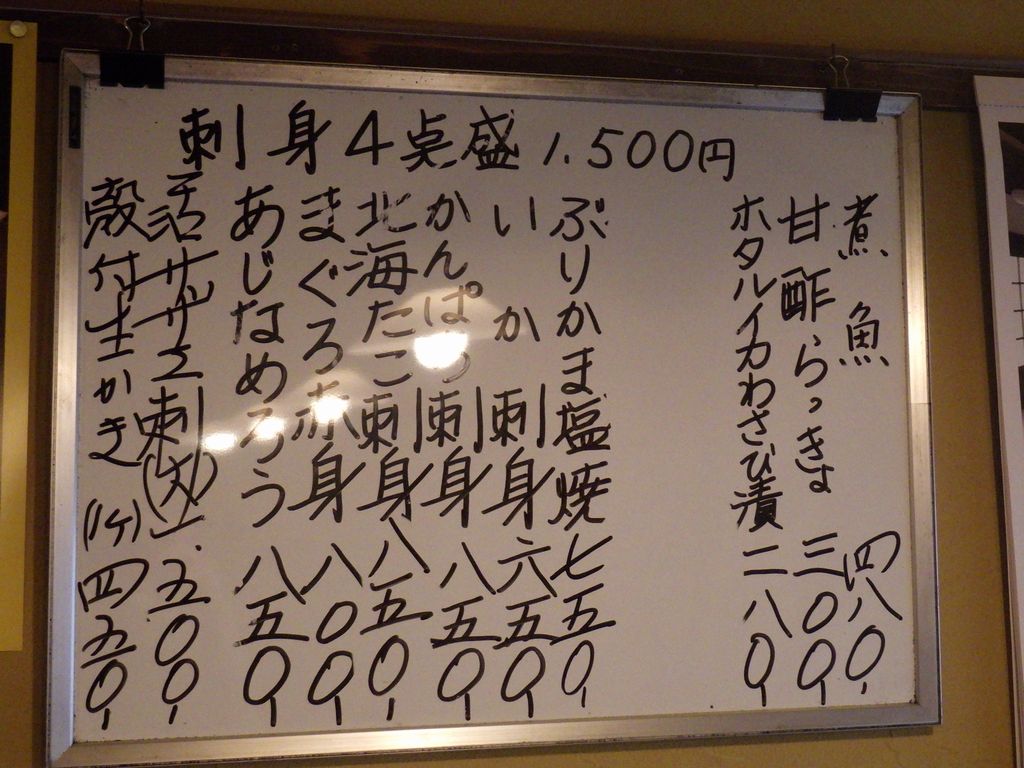 刺身4点盛 1.500円
煮魚 四八0
甘酢らっきょ 三00
ホタルイカわさび漬 二八0
ぶりかま塩焼 七五0
いか刺身 六五0
かんぱち刺身 八五0
北海たこ刺身 八五0
まぐろ赤身 八00
あじなめろう 八五0
活サザエ刺(大) 一、五00
殻付生かき(1ヶ) 四五0